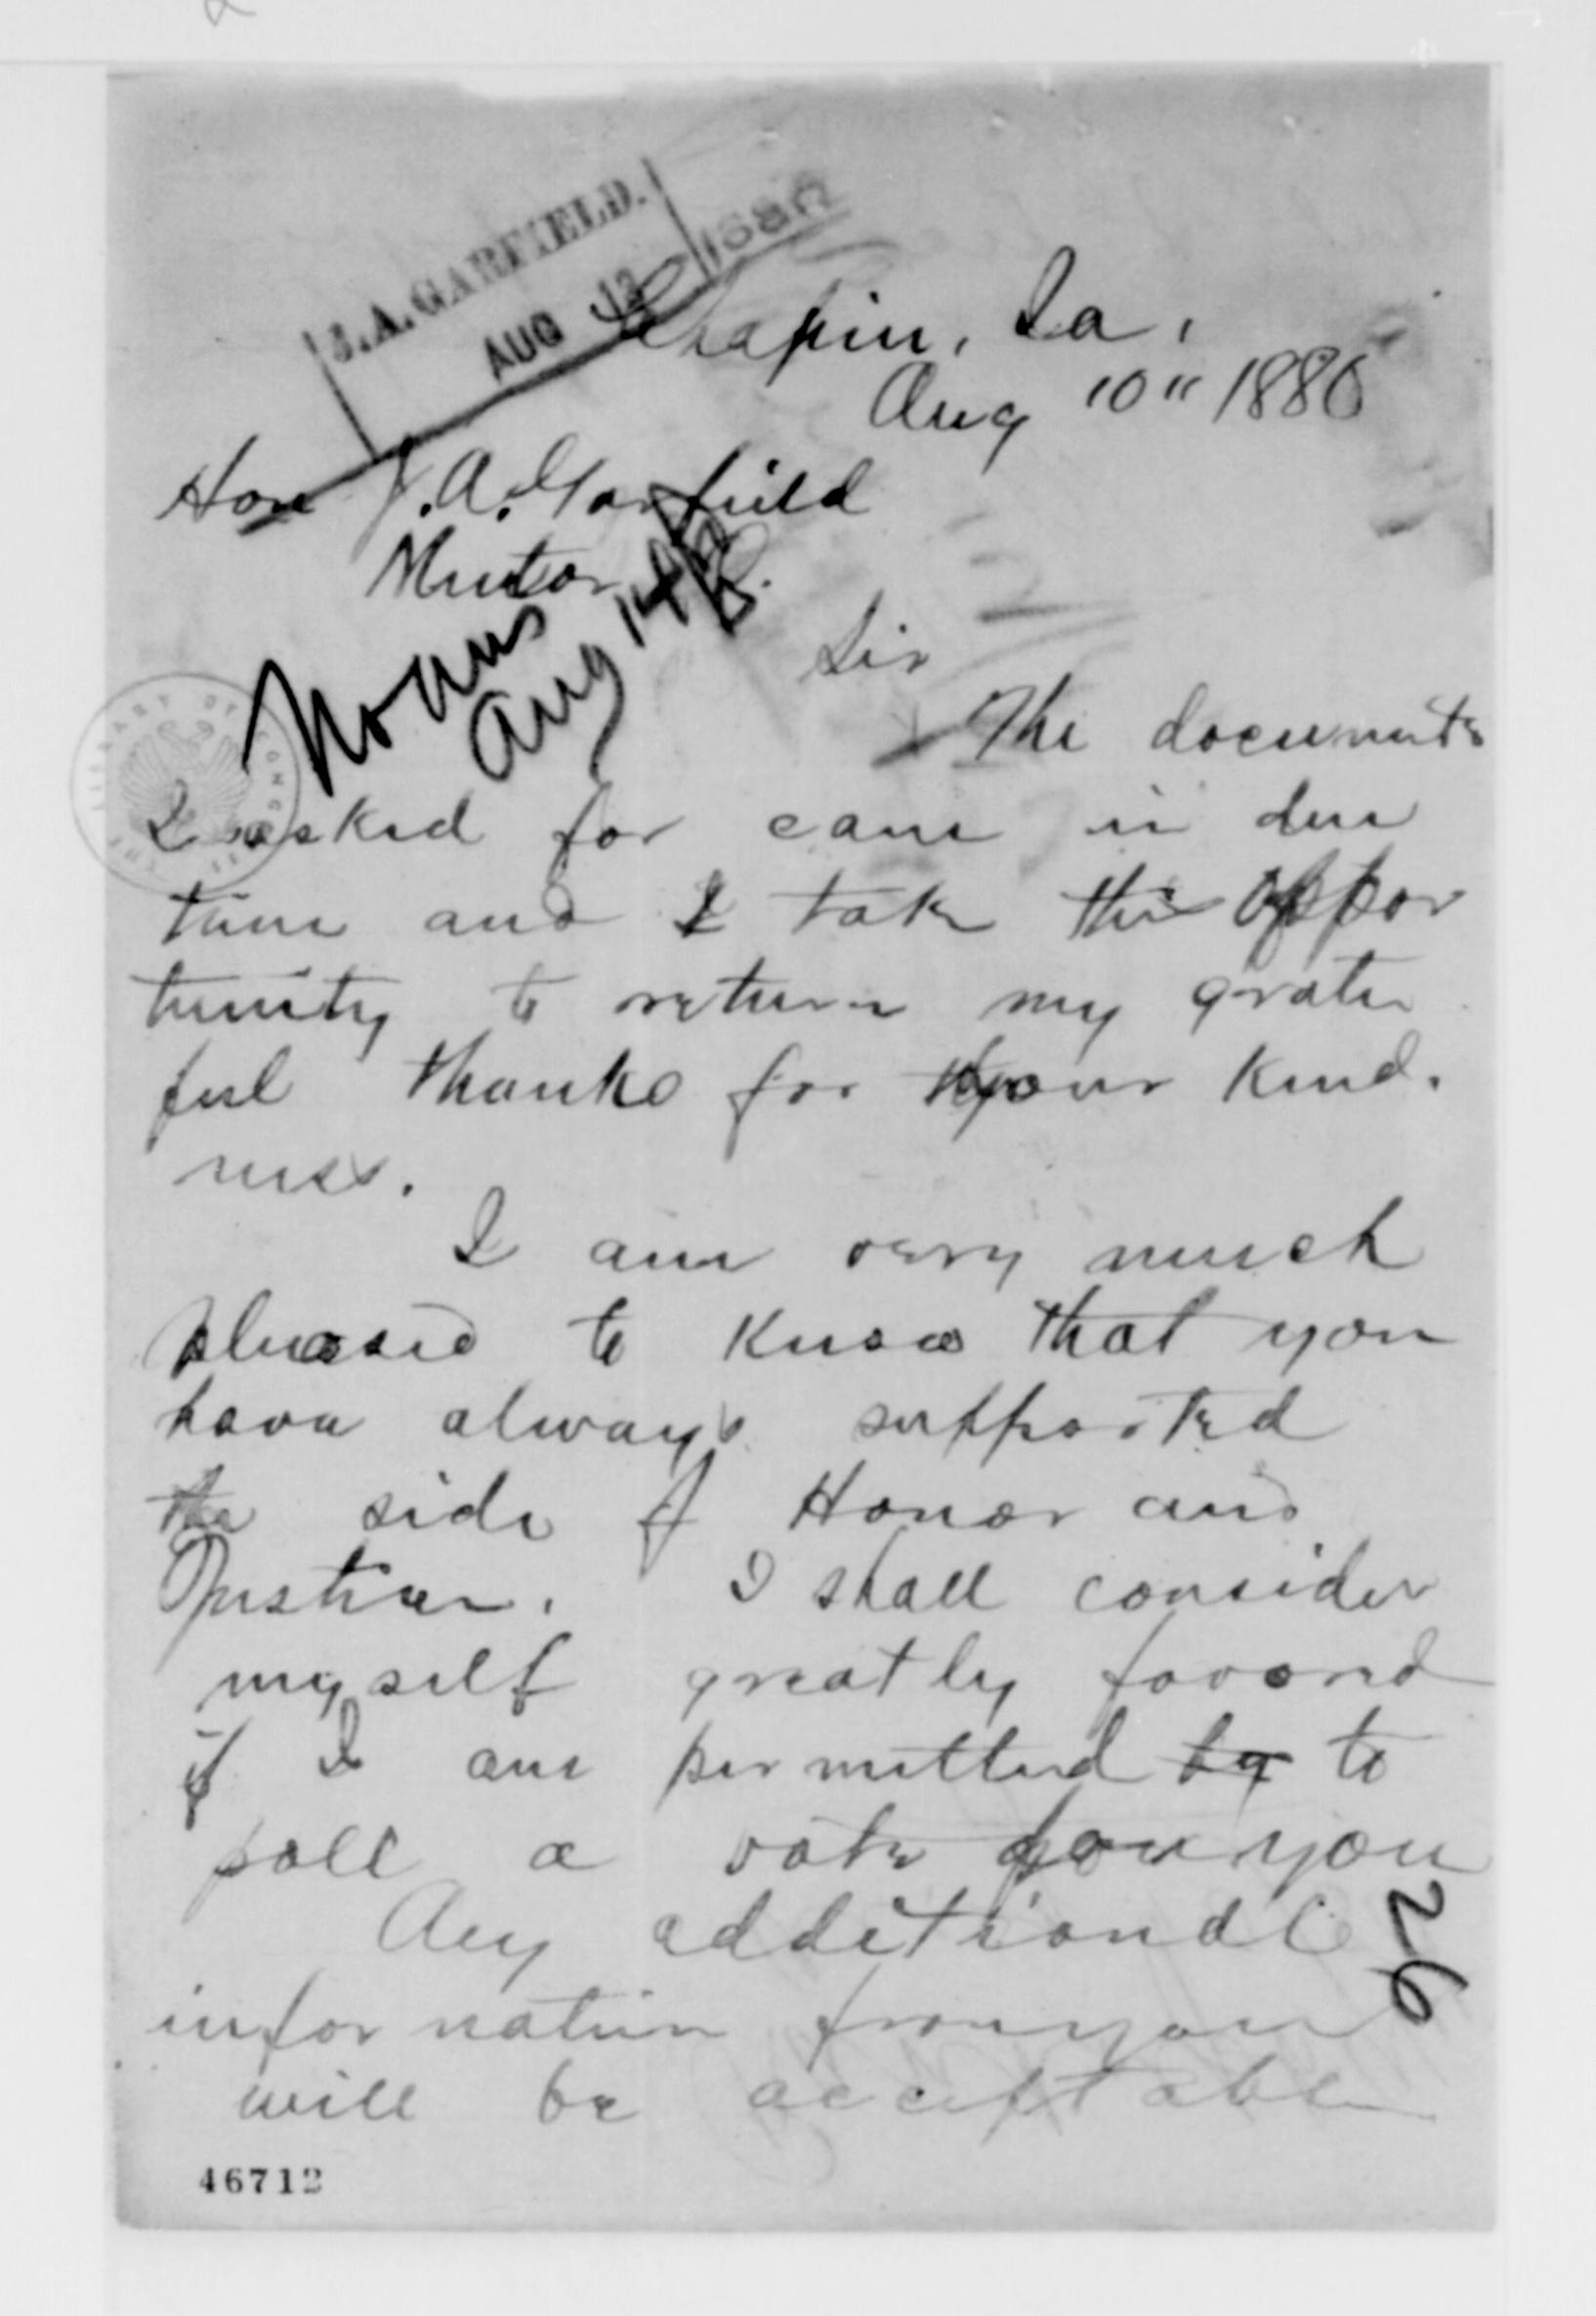 J. A. GARFIELD.
AUG 13 1880
Chapin, Ia,
Aug 10" 1880
Hon J. A. Garfield
Mentor
No ans
Aug 14
Sir
The documents
I asked for came in due
time and I take this oppor
tunity to return my grate
ful thanks for your kind.
ness.
I am very much
pleased to know that you
have always supported
the side of Honor and
Justice. I shall consider
myself greatly favored
if I am permitted to
poll a vote for you
Any additional
information from you
will be acceptable
26
46712